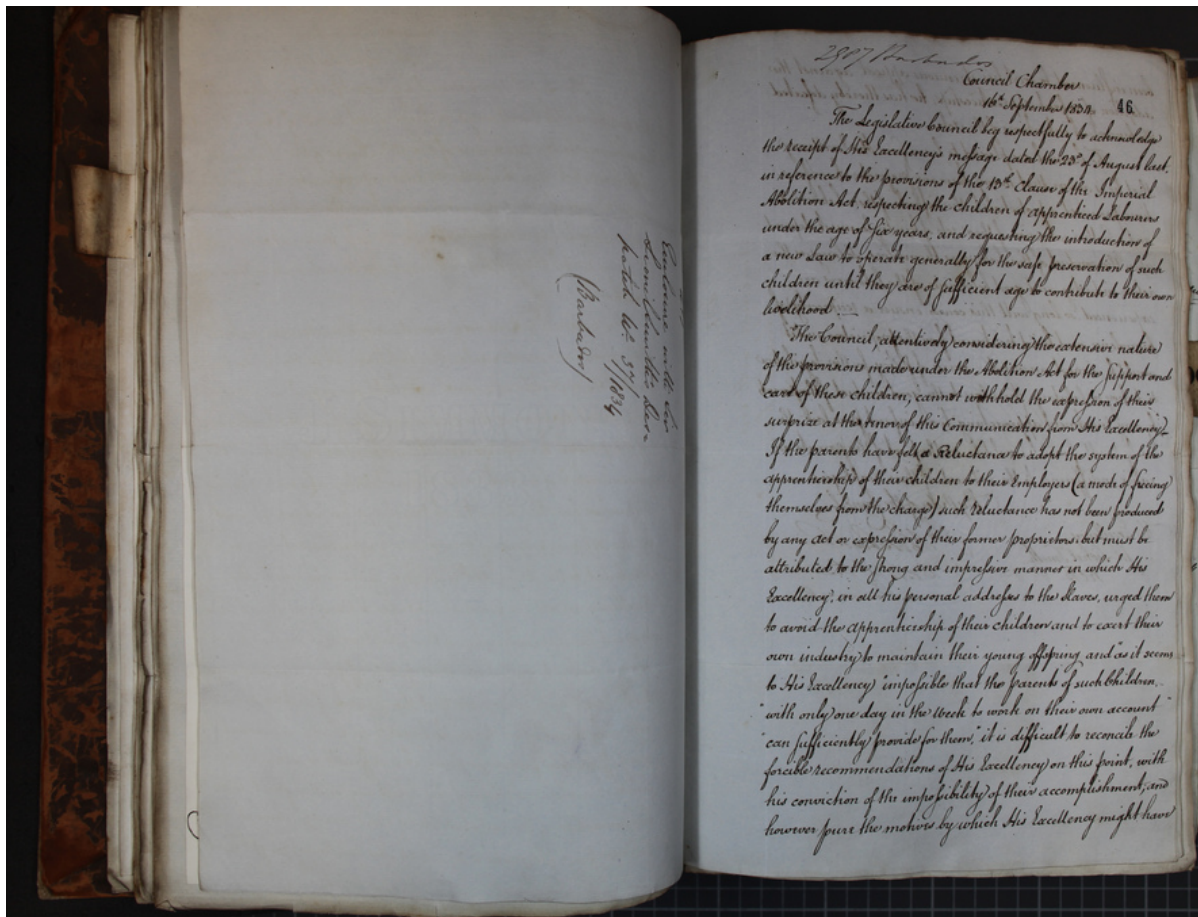 Enclosure with Sir
Lionel Smith's Des-
patch No. 37/
1834
(Barbados)
2907 Barbados
Council Chamber
16th September 1834.
46
The Legislative Council beg respectfully to acknowledge
the receipt of His Excellency's message dated the 23d of August last,
in reference to the provisions of the 13th Clause of the Imperial
Abolition Act, respecting the children of apprenticed Labourers
under the age of Six years, and requesting the introduction of
a new Law to operate generally for the safe preservation of such
children until they are of sufficient age to contribute to their own
livelihood.
The Council, attentively considering the extensive nature
of the provisions made under the Abolition Act for the support and
care of these children, cannot withhold the expression of their
surprize at the tenor of this Communication from His Excellency.
If the parents have felt a Reluctance to adopt the system of the
apprenticeship of their children to their Employers (a mode of freeing
themselves from the charge) such Reluctance has not been produced
by any act or expression of their former proprietors, but must be
attributed to the strong and impressive manner in which His
Excellency, in all his personal addresses to the Slaves, urged them
to avoid the apprenticeship of their children and to exert their
own industry to maintain their young offspring, and "as it seems
to His Excellency) "impossible that the parents of such Children,
"with only one day in the Week to work on their own account"
"can sufficiently provide for them," it is difficult to reconcile the
forcible recommendations of His Excellency on this point, with
his conviction of the impossibility of their accomplishment; and
however pure the motives by which His Excellency might have